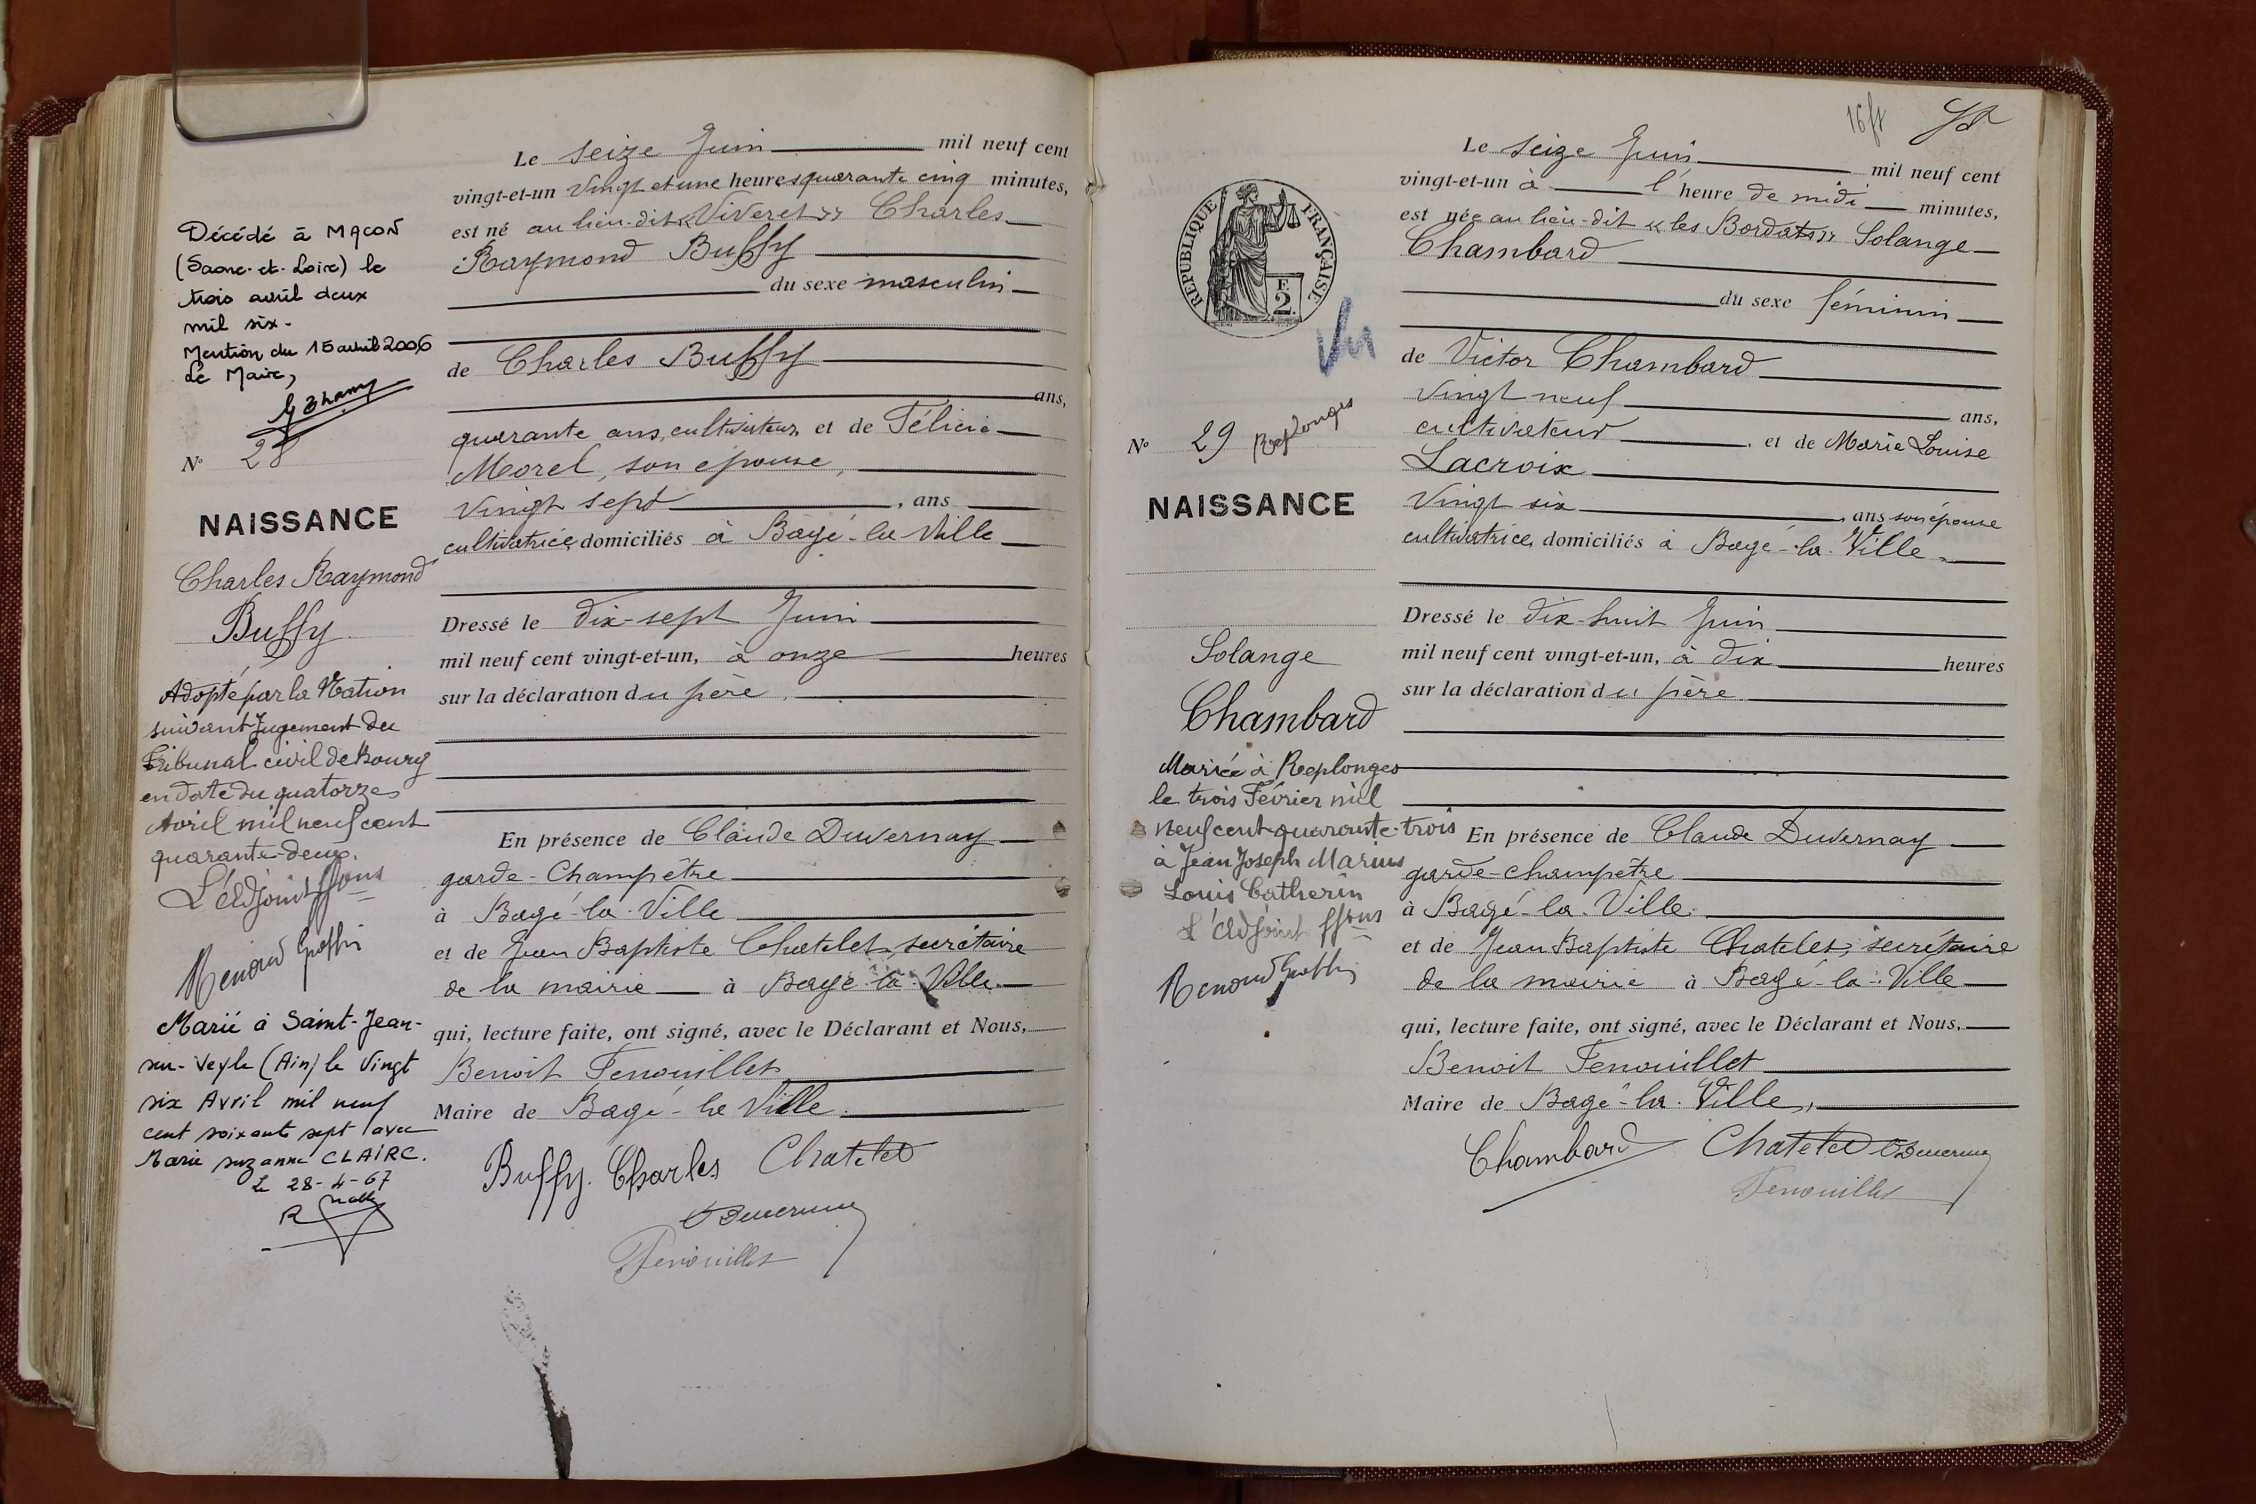 Décédé à MACON
(Saone-et-Loire) le
trois avril deux
mil six.
Mention du 15 avril 2006
Le Maire,
N° 28
NAISSANCE
Charles Raymond
Buffy
Adopté par la Nation
suivant Jugement du
Tribunal civil de Bourg
en date du quatorze
Avril mil neuf cent
quarante-deux.
L'Adjoint ffons
Renoud Graffin
Marié à Saint-Jean-
sur-Veyle (Ain) le Vingt
six Avril mil neuf
cent soixante sept avec
Marie Suzanne CLAIRC.
Le 28-4-67
Le seize Juin mil neuf cent
vingt-et-un vingt et une heures quarante cinq minutes,
est né au lieu-dit «Viveret» Charles
Raymond Buffy
du sexe masculin
de Charles Buffy
ans,
quarante ans, cultivateur et de Félicie
Morel, son épouse,
vingt sept , ans
cultivatrice, domiciliés à Bagé-la Ville
Dressé le dix-sept Juin
mil neuf cent vingt-et-un, à onze heures
sur la déclaration du père.
En présence de Claude Duvernay
garde-Champêtre
à Bagé-la-Ville
et de Jean Baptiste Chatelet, secrétaire
de la mairie à Bagé-la-Ville.
qui, lecture faite, ont signé, avec le Déclarant et Nous,
Benoit Fenouillet
Maire de Bagé-la Ville.
Buffy Charles Chatelet
Duvernay
Fenouillet
16 ft
RÉPUBLIQUE FRANÇAISE
F.
2.
N° 29 Replonges
NAISSANCE
Solange
Chambard
Mariée à Replonges
le trois Février mil
neuf cent quarante-trois
à Jean Joseph Marius
Louis Catherin
L'Adjoint ffons
Renoud Graffin
Le seize Juin mil neuf cent
vingt-et-un à l'heure de midi minutes,
est née au lieu-dit «les Bordats» Solange
Chambard
du sexe féminin
de Victor Chambard
vingt neuf ans,
cultivateur , et de Marie Louise
Lacroix
vingt six , ans son épouse
cultivatrice, domiciliés à Bagé-la-Ville.
Dressé le dix-huit Juin
mil neuf cent vingt-et-un, à dix heures
sur la déclaration du père
En présence de Claude Duvernay
garde-champêtre
à Bagé-la-Ville.
et de Jean Baptiste Chatelet, secrétaire
de la mairie à Bagé-la-Ville
qui, lecture faite, ont signé, avec le Déclarant et Nous,
Benoit Fenouillet
Maire de Bagé-la-Ville,
Chambard Chatelet Duvernay
Fenouillet